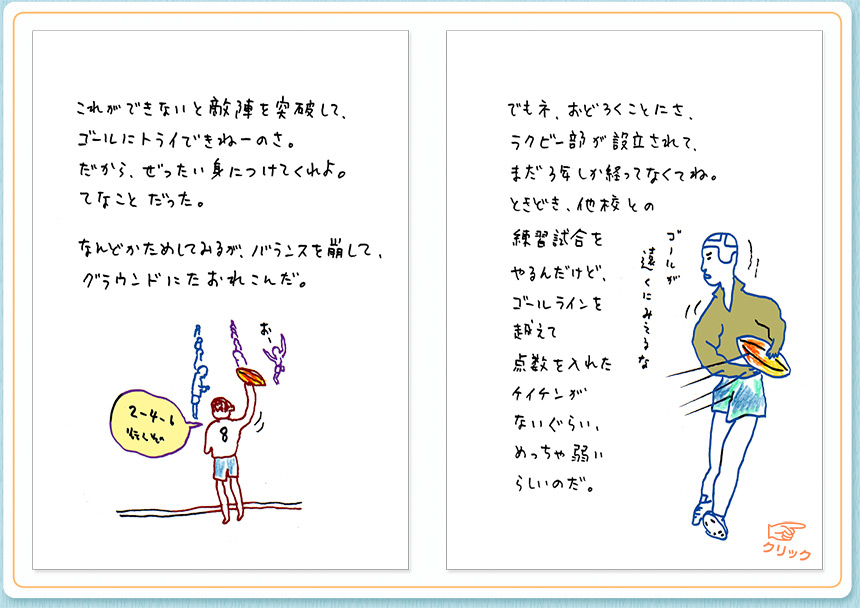 これができないと敵陣を突破して、
ゴールにトライできねーのさ。
だから、ぜったい身につけてくれよ。
てなことだった。
なんどかためしてみるが、バランスを崩して、
グラウンドにたおれこんだ。
おー
2-4-6
行くぞ
8
でもネ、おどろくことにさ、
ラクビー部が設立されて、
まだ3年しか経ってなくてね。
ときどき、他校との
練習試合を
やるんだけど、
ゴールラインを
越えて
点数を入れた
ケイケンが
ないぐらい、
めっちゃ弱い
らしいのだ。
ゴールが
遠くにみえるな
クリック